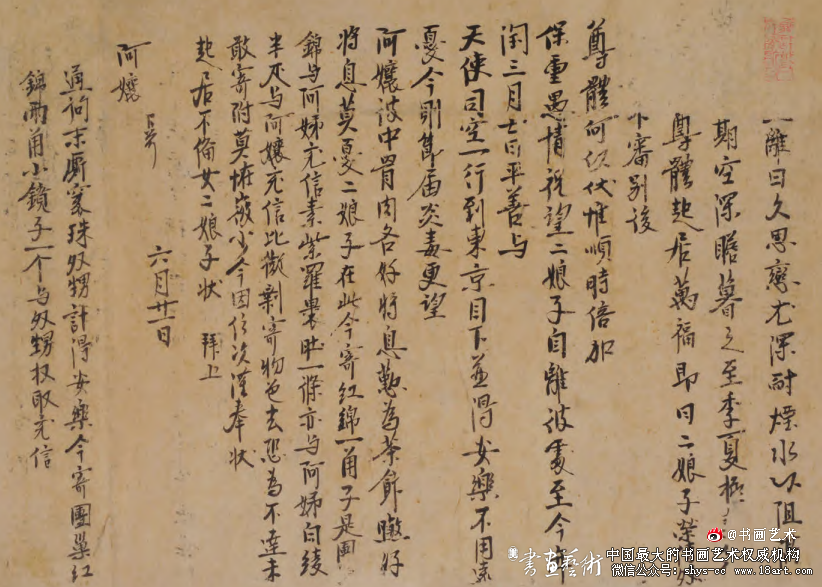 一離日久思戀尤深耐煙水以阻
期空深瞻暮之至季夏極
尊體起居萬福即日二娘子蒙
下審別後
尊體何似伏惟順時倍加
保重愚情祝望二娘子自離彼處至今年
閏三月七日平善与
天使司空一行到東京目下並得安樂不用遠
憂今則節届炎毒更望
阿孃彼中骨肉各好將息勤為茶飰煞好
將息莫憂二娘子在此今寄紅錦一角子是團
錦与阿姊充信素紫羅裹肚一條亦与阿姊白綾
半疋与阿孃充信比擬剩寄物色去恐為不達未
敢寄附莫怪微少今因信次謹奉狀
起居不備女二娘子狀 拜上
阿孃 几前
六月廿一日
通詢末厮褒珠奴甥計得安樂今寄團巢紅
錦兩角小鏡子一个与奴甥收取充信
@书画艺术
書畫藝術
中国最大的书画艺术权威机构
微信公众号：shys-cc www.18art.com